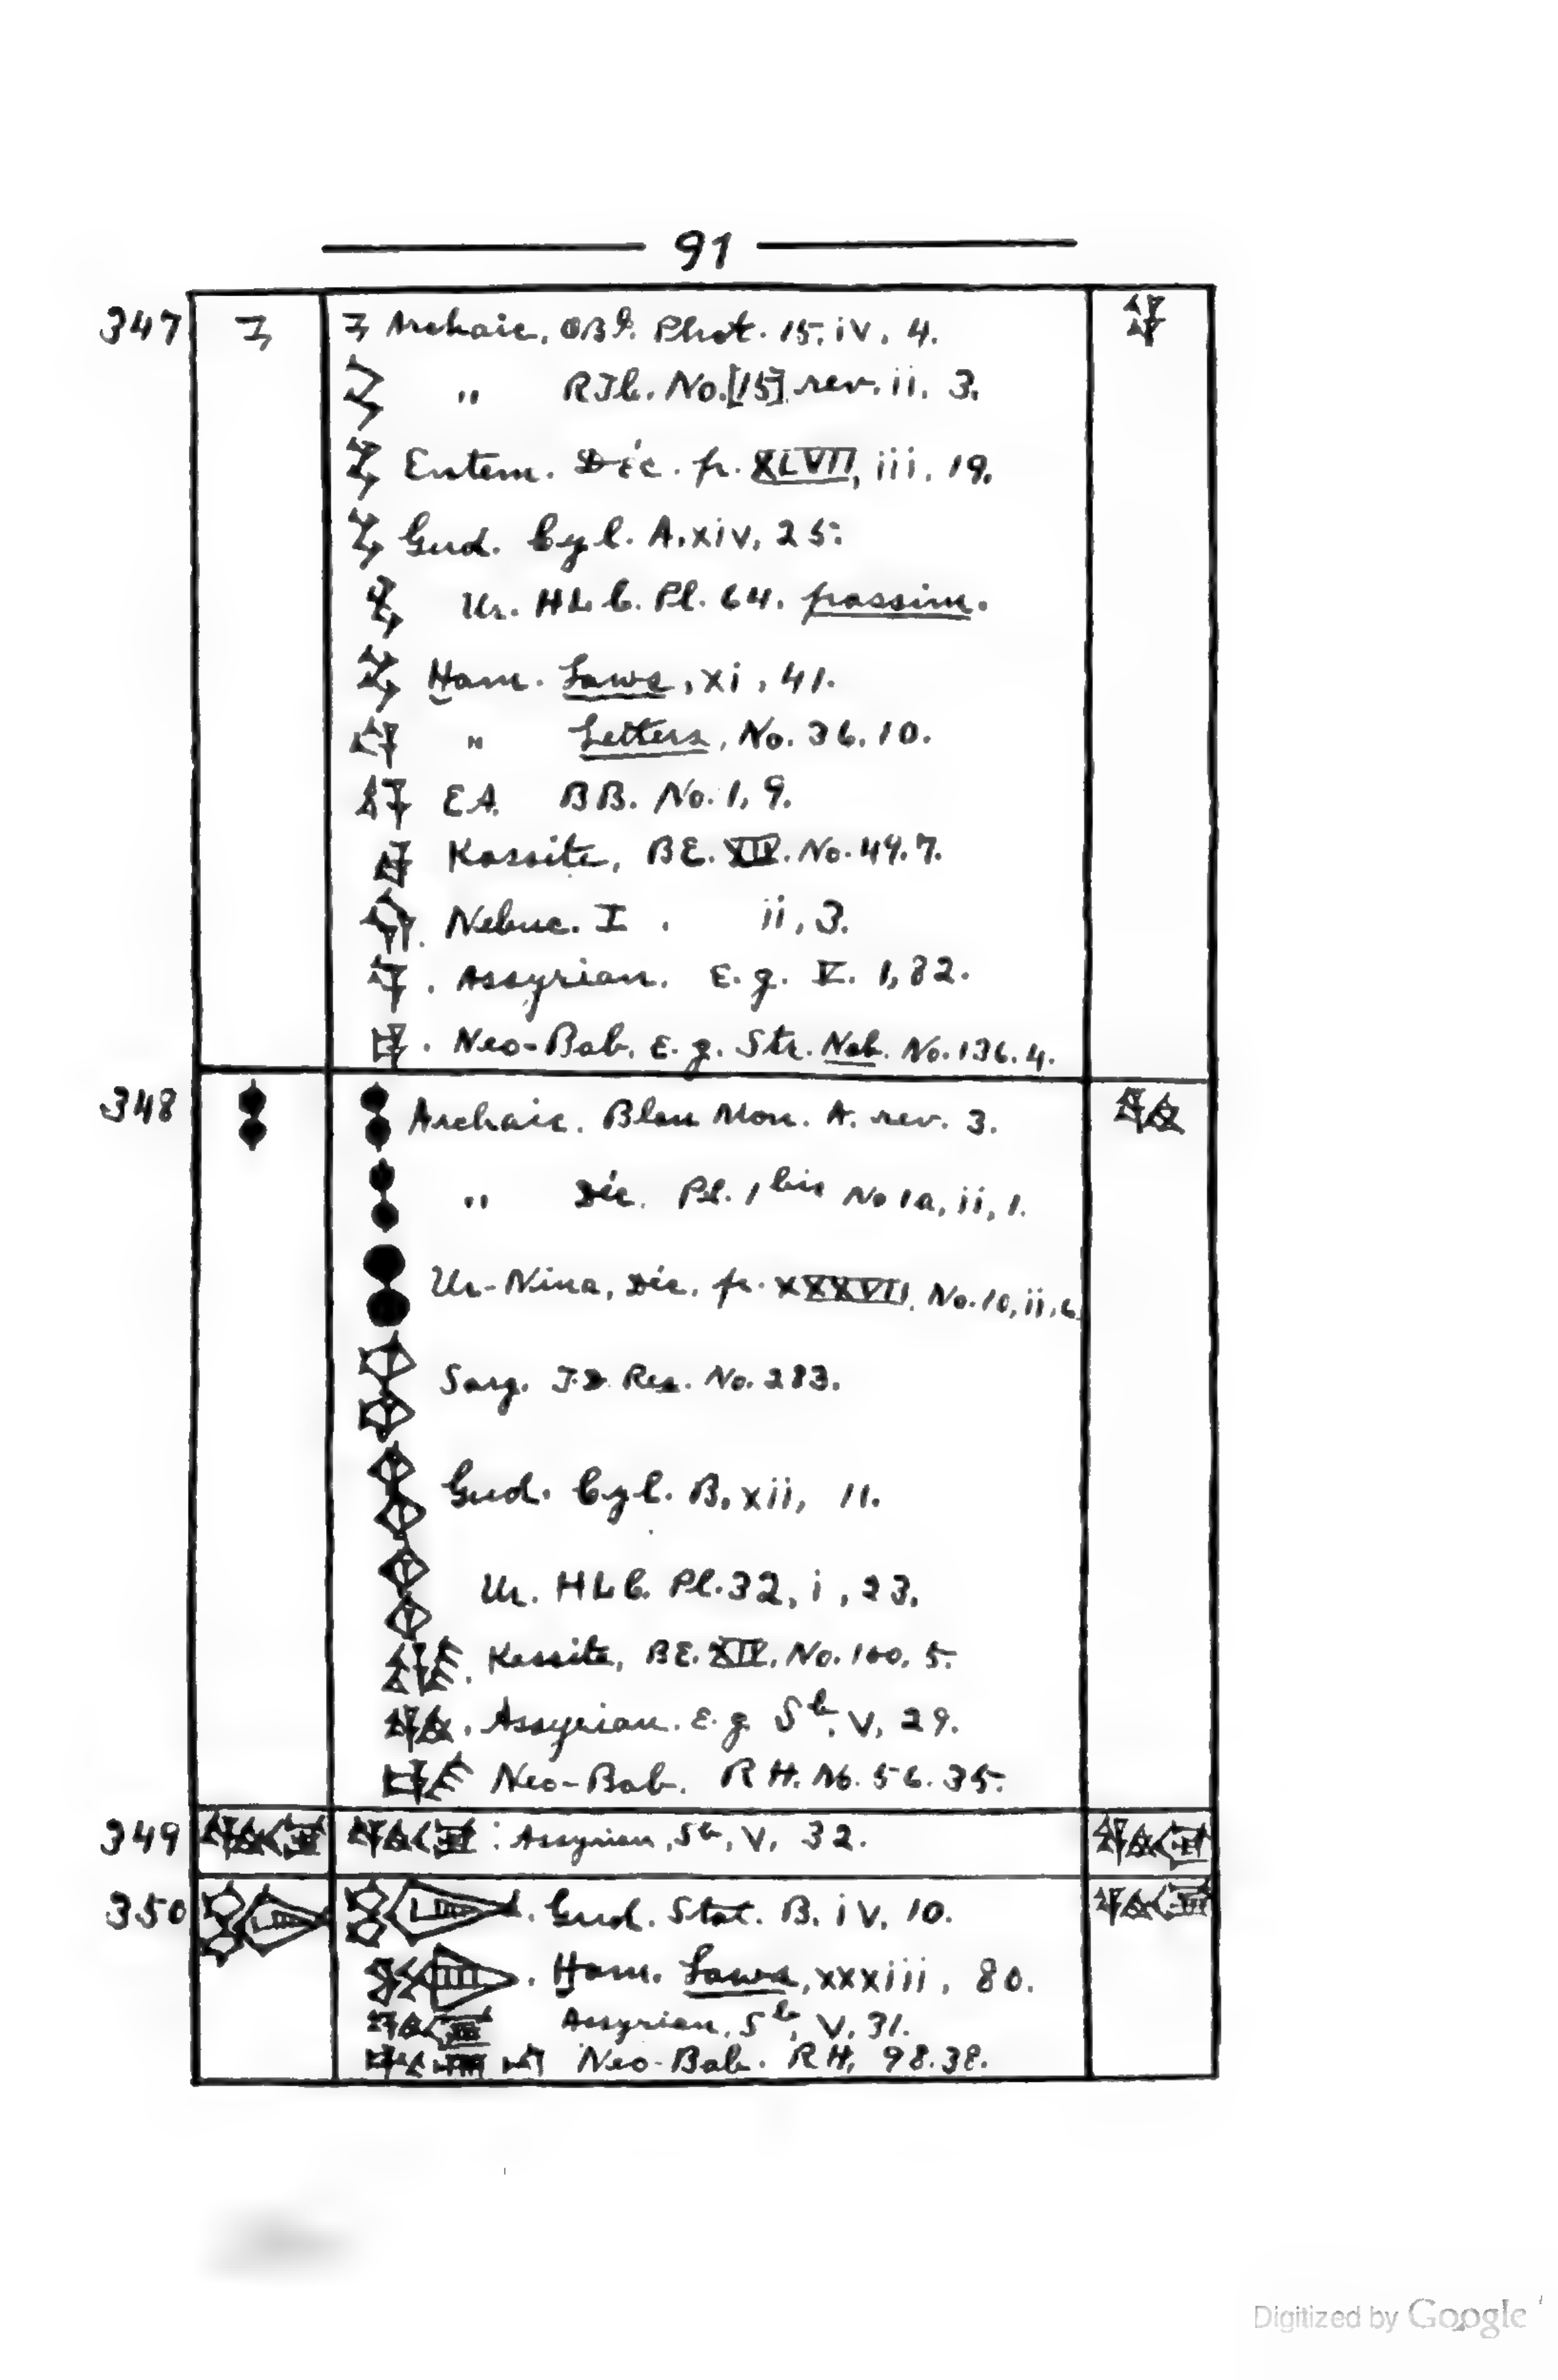 91
347 Archaic. OBI. Phot. 15, iv, 4.
" RTC. No. [15] rev. ii. 3.
Entem. Déc. p. XLVII, iii, 19.
Gud. Cyl. A. xiv, 25.
Ur. HLC. Pl. 64. passim.
Ḫam. Laws, xi, 41.
" Letters, No. 36. 10.
EA. BB. No. 1, 9.
Kassite, BE. XIV. No. 49. 7.
Nebuc. I. ii, 3.
Assyrian. E.g. V. 1, 82.
Neo-Bab. E.g. Str. Neb. No. 136. 4.
348 Archaic. Blau Mon. A. rev. 3.
" Déc. Pl. 1 bis No 1a, ii, 1.
Ur-Nina, Déc. p. XXXVII, No. 10, ii, 6.
Sarg. No. 283.
Gud. Cyl. B, xii, 11.
Ur. HLC. Pl. 32, i, 23.
Kassite, BE. XIV, No. 100. 5.
Assyrian. E.g. Sb, V, 29.
Neo-Bab. RH. No. 56. 35.
349 Assyrian, Sb, V, 32.
350 Gud. Stat. B. iv, 10.
Ḫam. Laws, xxxiii, 80.
Assyrian, Sb, V, 31.
Neo-Bab. RH, 98. 38.
Digitized by Google